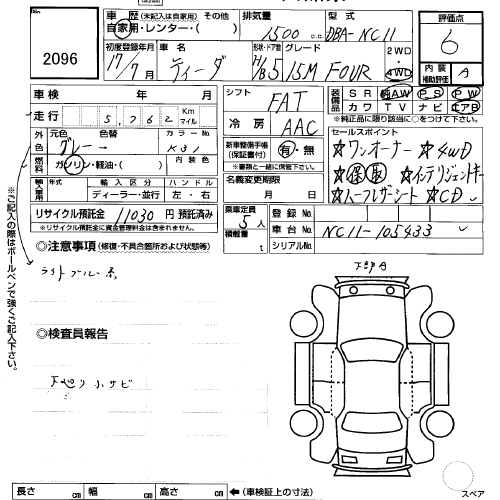 No.
2096
車歴 (未記入は自家用) その他
自家用・レンター・( )
排気量
1500 c.c.
型式
DBA-NC11
評価点
6
初度登録年月
17/7月
車名
ティーダ
形状・ドア数
H/B 5
グレード
15M FOUR
2WD・4WD
内装補助評価
A
車検 年 月
シフト
FAT
装備品
SR 純AW PS PW
カワ TV ナビ エアB
※純正品に限り該当に○をつけて下さい
走行 5,762 Km マイル
冷房
AAC
セールスポイント
☆ワンオーナー ☆4WD
外色
元色 色替
グレー →
カラーNo.
K51
新車整備手帳(保証書付)
有・無
※書類と一緒に保管下さい
燃料
ガソリン・軽油・( )
内装色
輸入車用
年式
輸入区分
ディーラー・並行
ハンドル
左・右
名義変更期限
月 日
リサイクル預託金 11030 円 預託済み
※リサイクル預託金に資金管理料金は含まれません。
乗車定員
5 人
積載量
t
登録No.
車台No.
NC11-105433
シリアルNo.
◎注意事項 (修復・不具合箇所および状態等)
◎検査員報告
下廻り小サビ
※ご記入の際はボールペンで強くご記入下さい。
長さ cm 幅 cm 高さ cm
(車検証上の寸法)
スペア